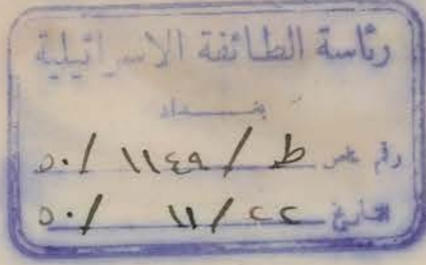 رئاسة الطائفة الاسرائيلية
بغداد
رقم ط / ١١٤٩ / ٥٠
التاريخ ٢٢ / ١١ / ٥٠